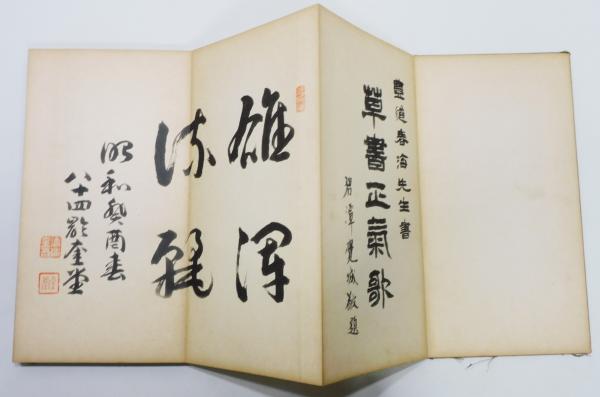 豊道春海先生書
草書正氣歌
敬題
雄渾
流麗
昭和癸酉春
八十四齡奎堂